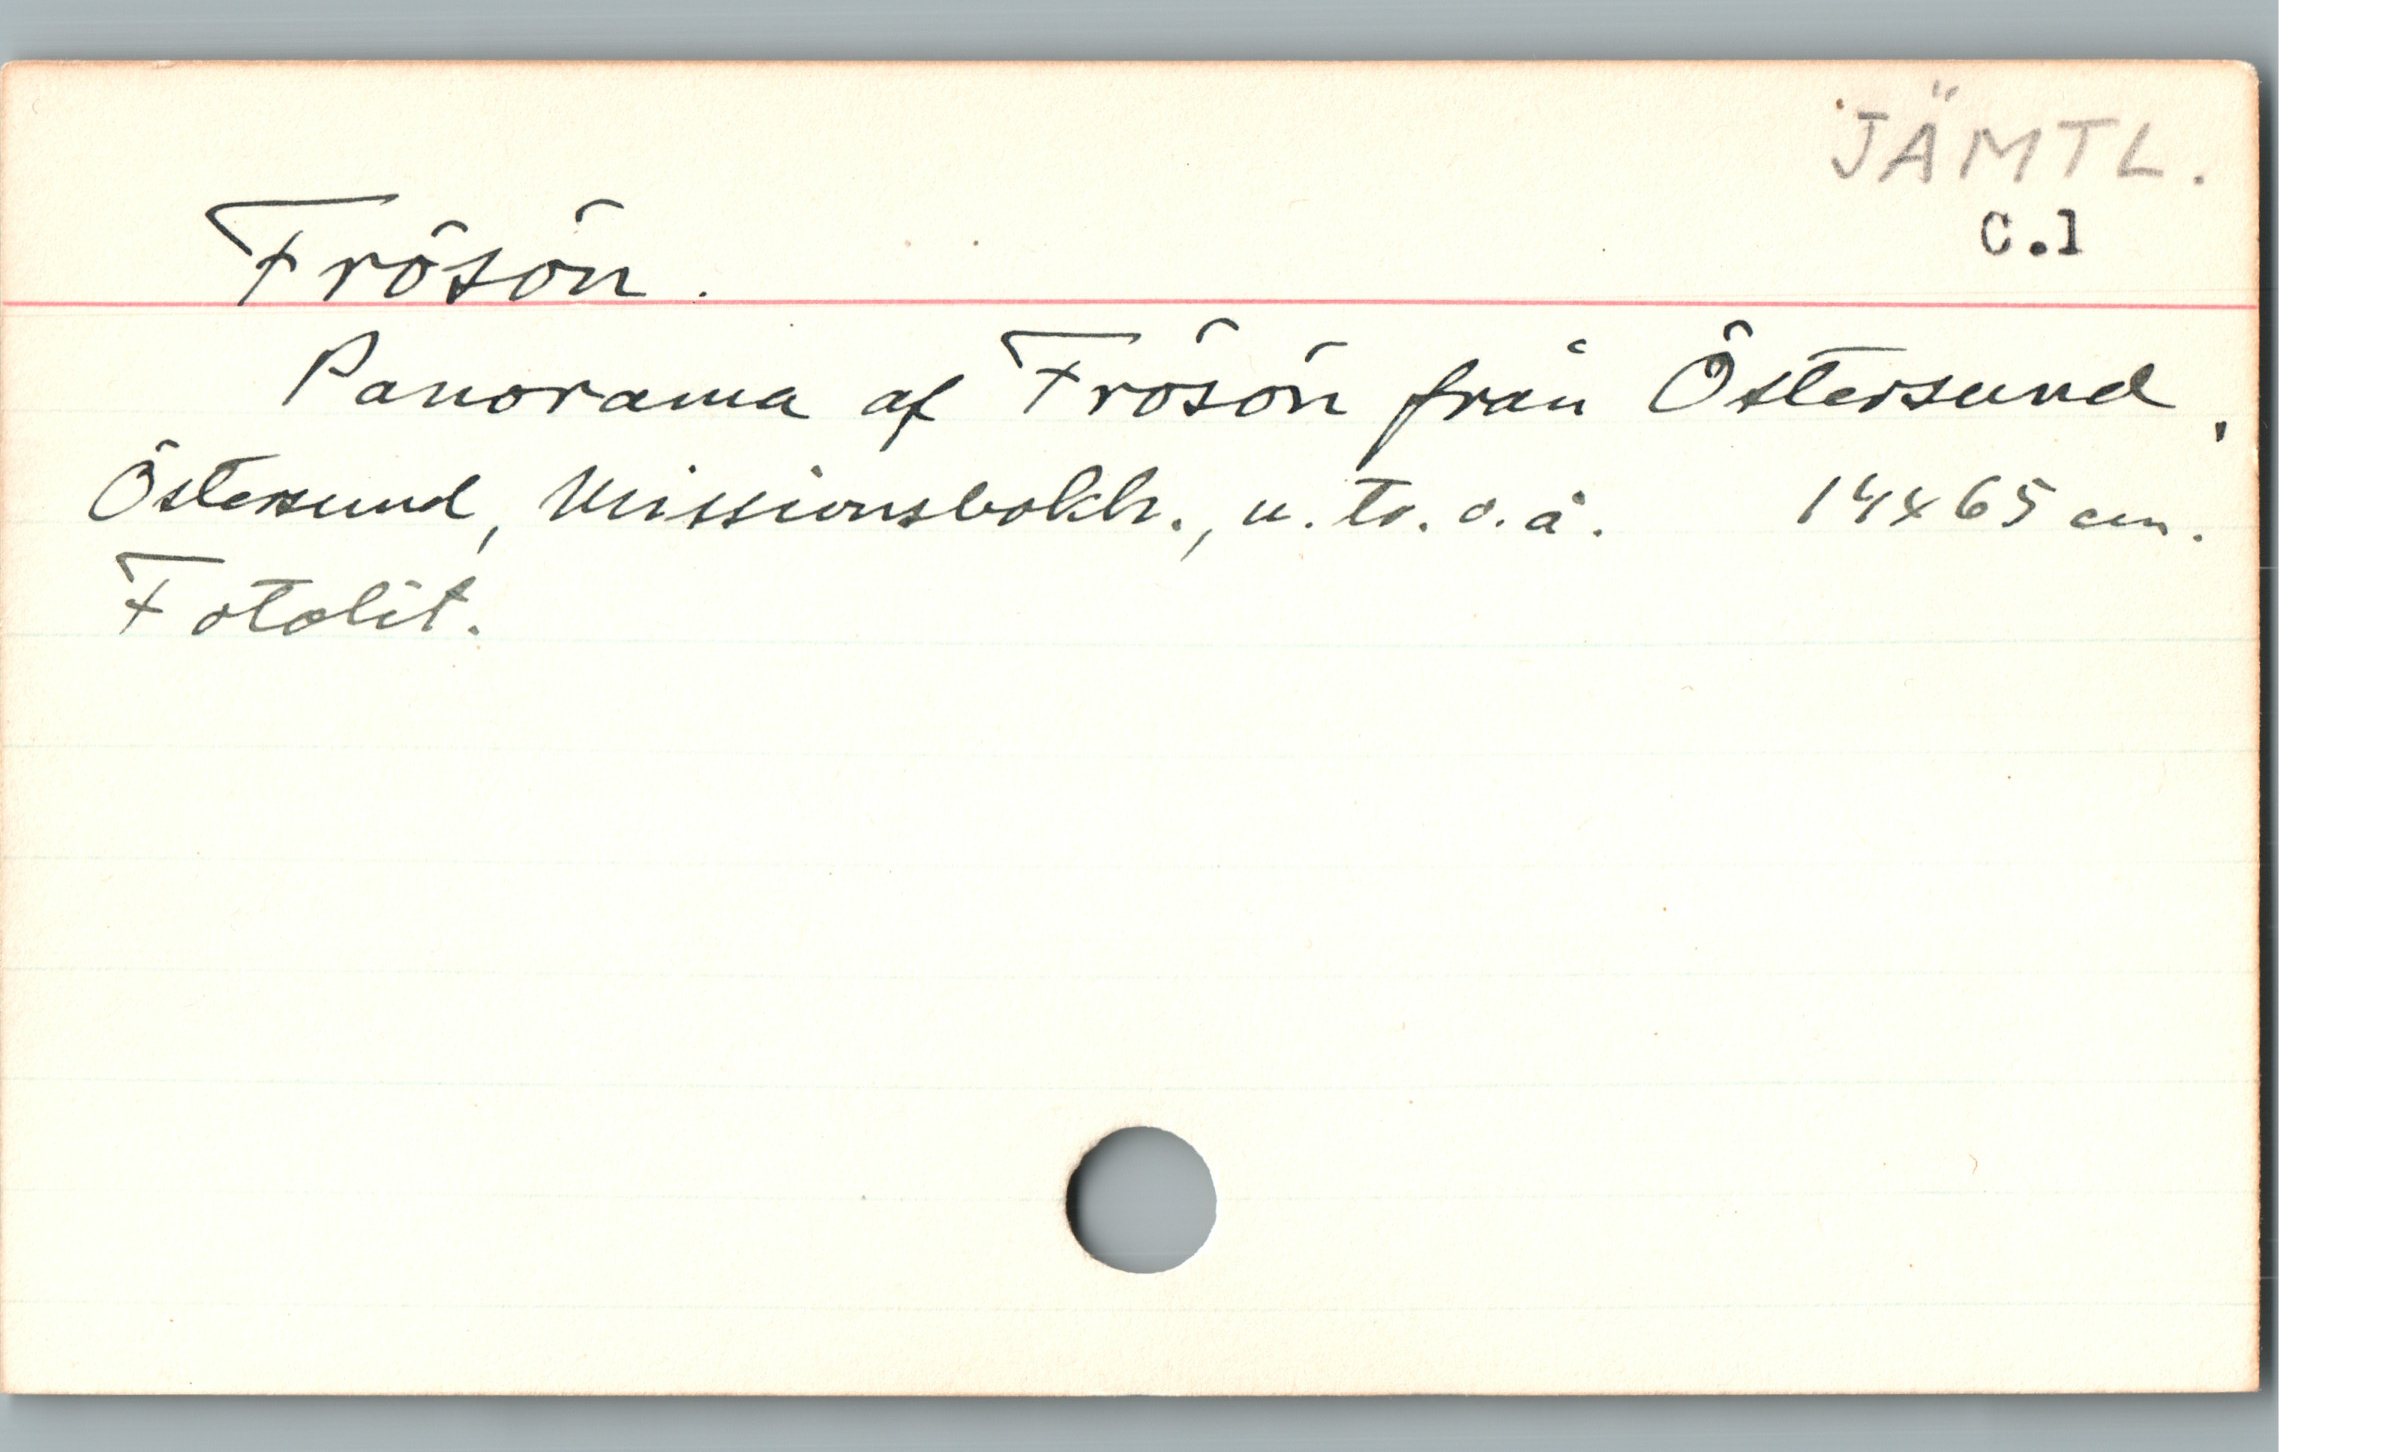 JÄMTL.
C.1
Frösön.
Panorama af Frösön från Östersund,
Östersund, Missionsbokh., u. tr. o. å. 14x65 cm.
Fotolit.